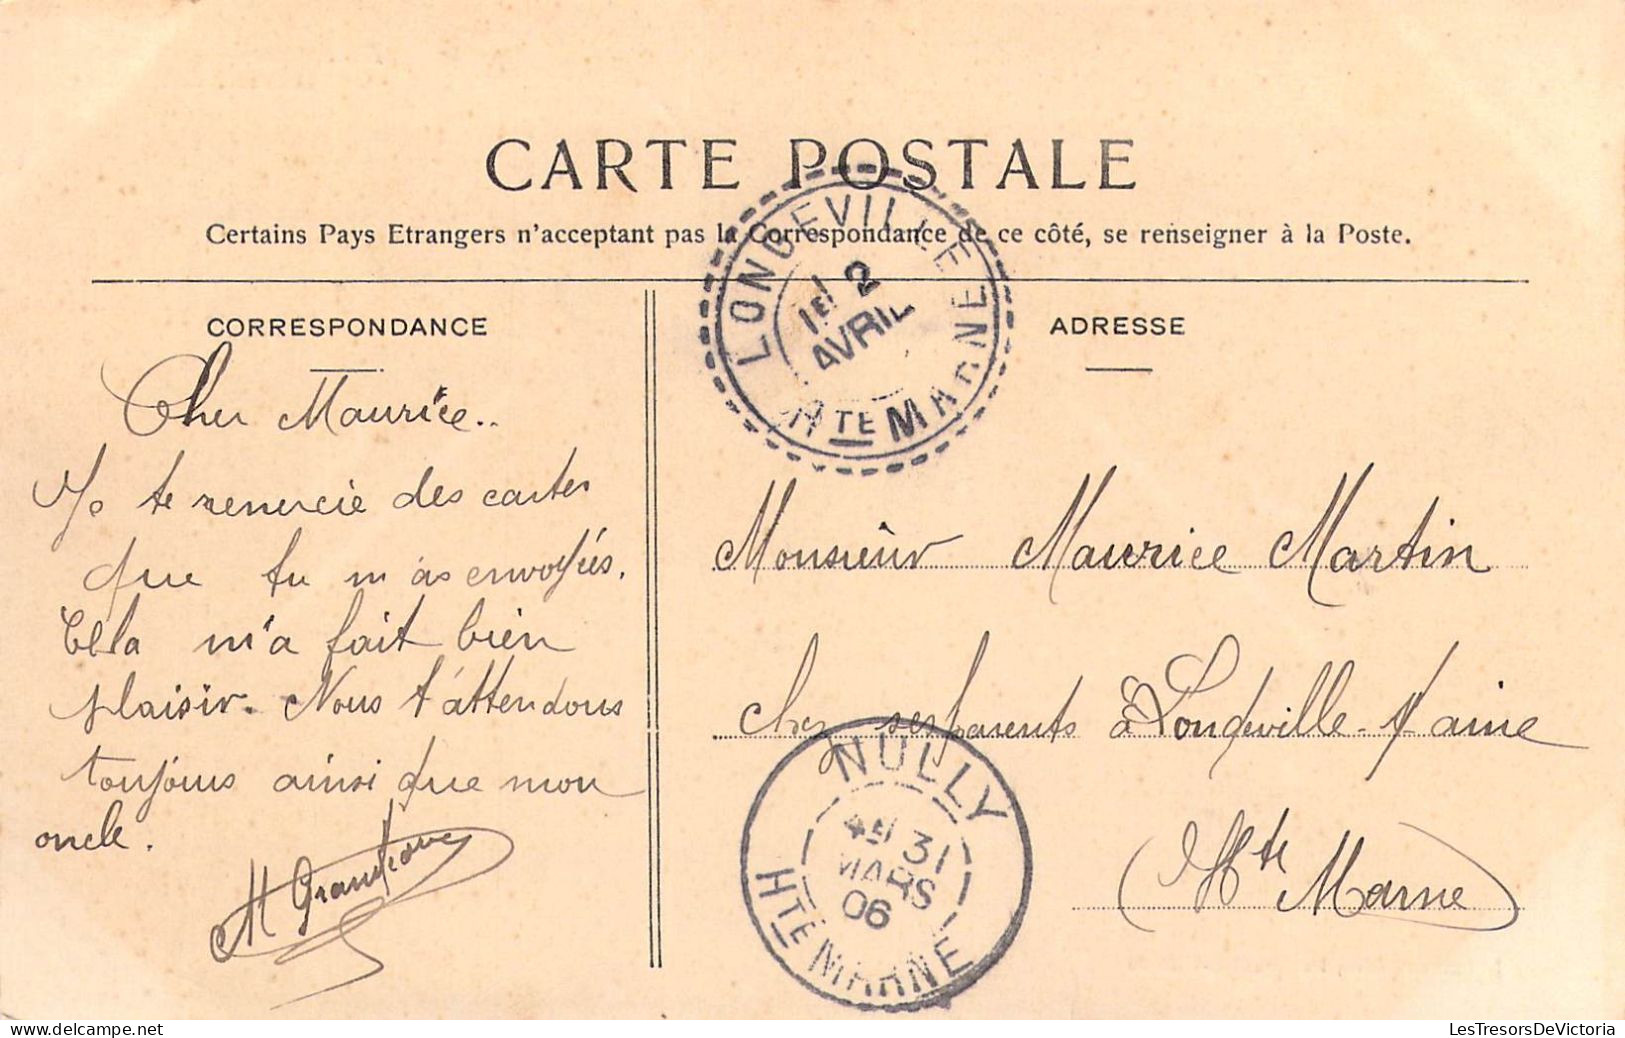 CARTE POSTALE
Certains Pays Etrangers n'acceptant pas la Correspondance de ce côté, se renseigner à la Poste.
LONDEVILLE
1E/ 2
AVRIL
HTE MARNE
CORRESPONDANCE
Cher Maurice..
Je te remercie des cartes
que tu m'as envoyés.
Cela m'a fait bien
plaisir. Nous t'attendons
toujours ainsi que mon
oncle.
ADRESSE
Monsieur Maurice Martin
chez ses parents à Londeville
Hte Marne
NULLY
4E 31
MARS
06
HTE MARNE
LesTresorsDeVictoria
www.delcampe.net